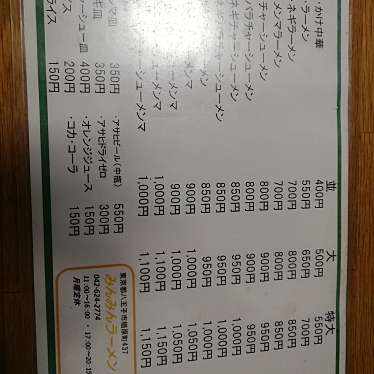 並 大 特大
かけ中華 400円 500円 550円
ラーメン 550円 650円 700円
ネギラーメン 700円 800円 850円
メンマラーメン 700円 800円 850円
チャーシューメン 800円 900円 950円
バラチャーシューメン 800円 900円 950円
ネギチャーシューメン 850円 950円 1,000円
チャーシューメン 850円 950円 1,000円
メン 850円 950円 1,000円
メンマ 900円 1,000円 1,050円
メンマ 900円 1,000円 1,050円
メンマ 1,000円 1,100円 1,150円
シューメンマ 1,000円 1,100円 1,150円
マ皿 350円 ・アサヒビール(中瓶) 550円
ギ皿 350円 ・アサヒドライゼロ 300円
ーシュー皿 400円 ・オレンジジュース 150円
ス 200円 ・コカ・コーラ 150円
ライス 150円
東京都八王子市楢原町437
みんみんラーメン
042-624-2774
11:00〜16:00 ・ 17:00〜20:
月曜定休